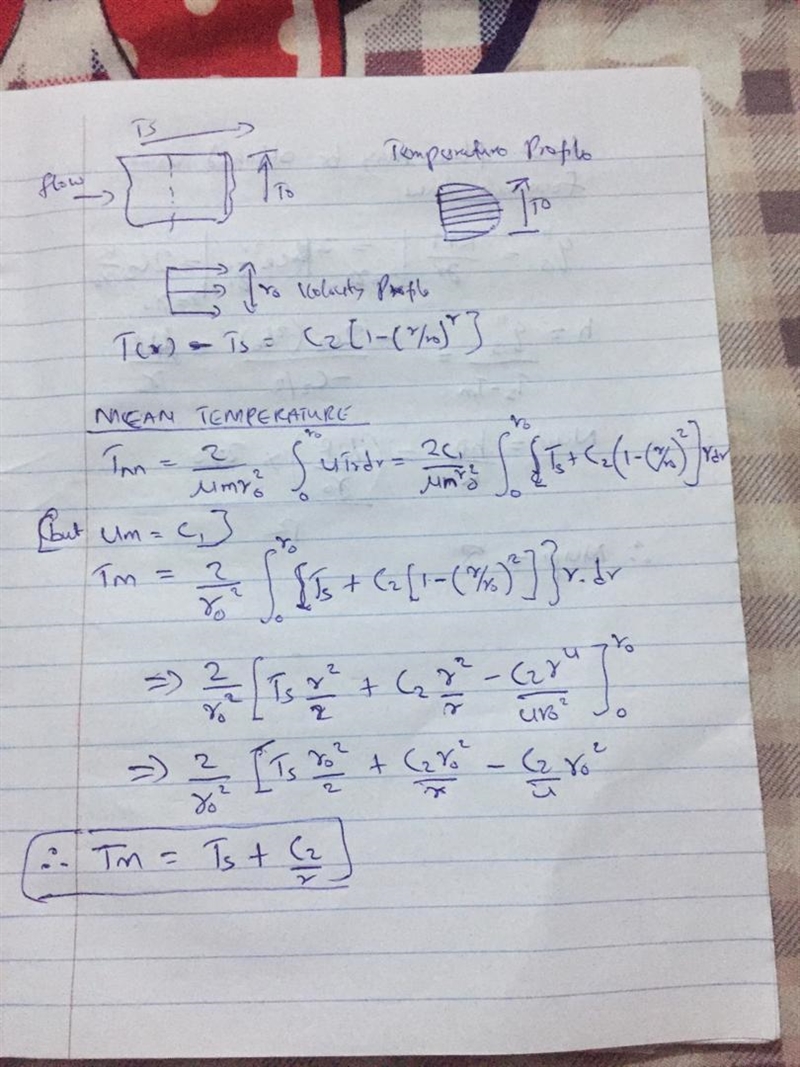 Ts
flow
r0
Temperature Profile
r0
r0 Velocity Profile
T(r) - Ts = C2[1-(r/r0)^2]
MEAN TEMPERATURE
Tm = 2/(um r0^2) ∫_0^r0 uTrdr = 2C1/(um r0^2) ∫_0^r0 {Ts + C2(1-(r/r0)^2]rdr
[but um = C1]
Tm = 2/r0^2 ∫_0^r0 {Ts + C2[1-(r/r0)^2]}r.dr
=> 2/r0^2 [Ts r^2/2 + C2 r^2/2 - C2r^4/4r0^2]_0^r0
=> 2/r0^2 [Ts r0^2/2 + C2r0^2/2 - C2/4 r0^2
∴ Tm = Ts + C2/2